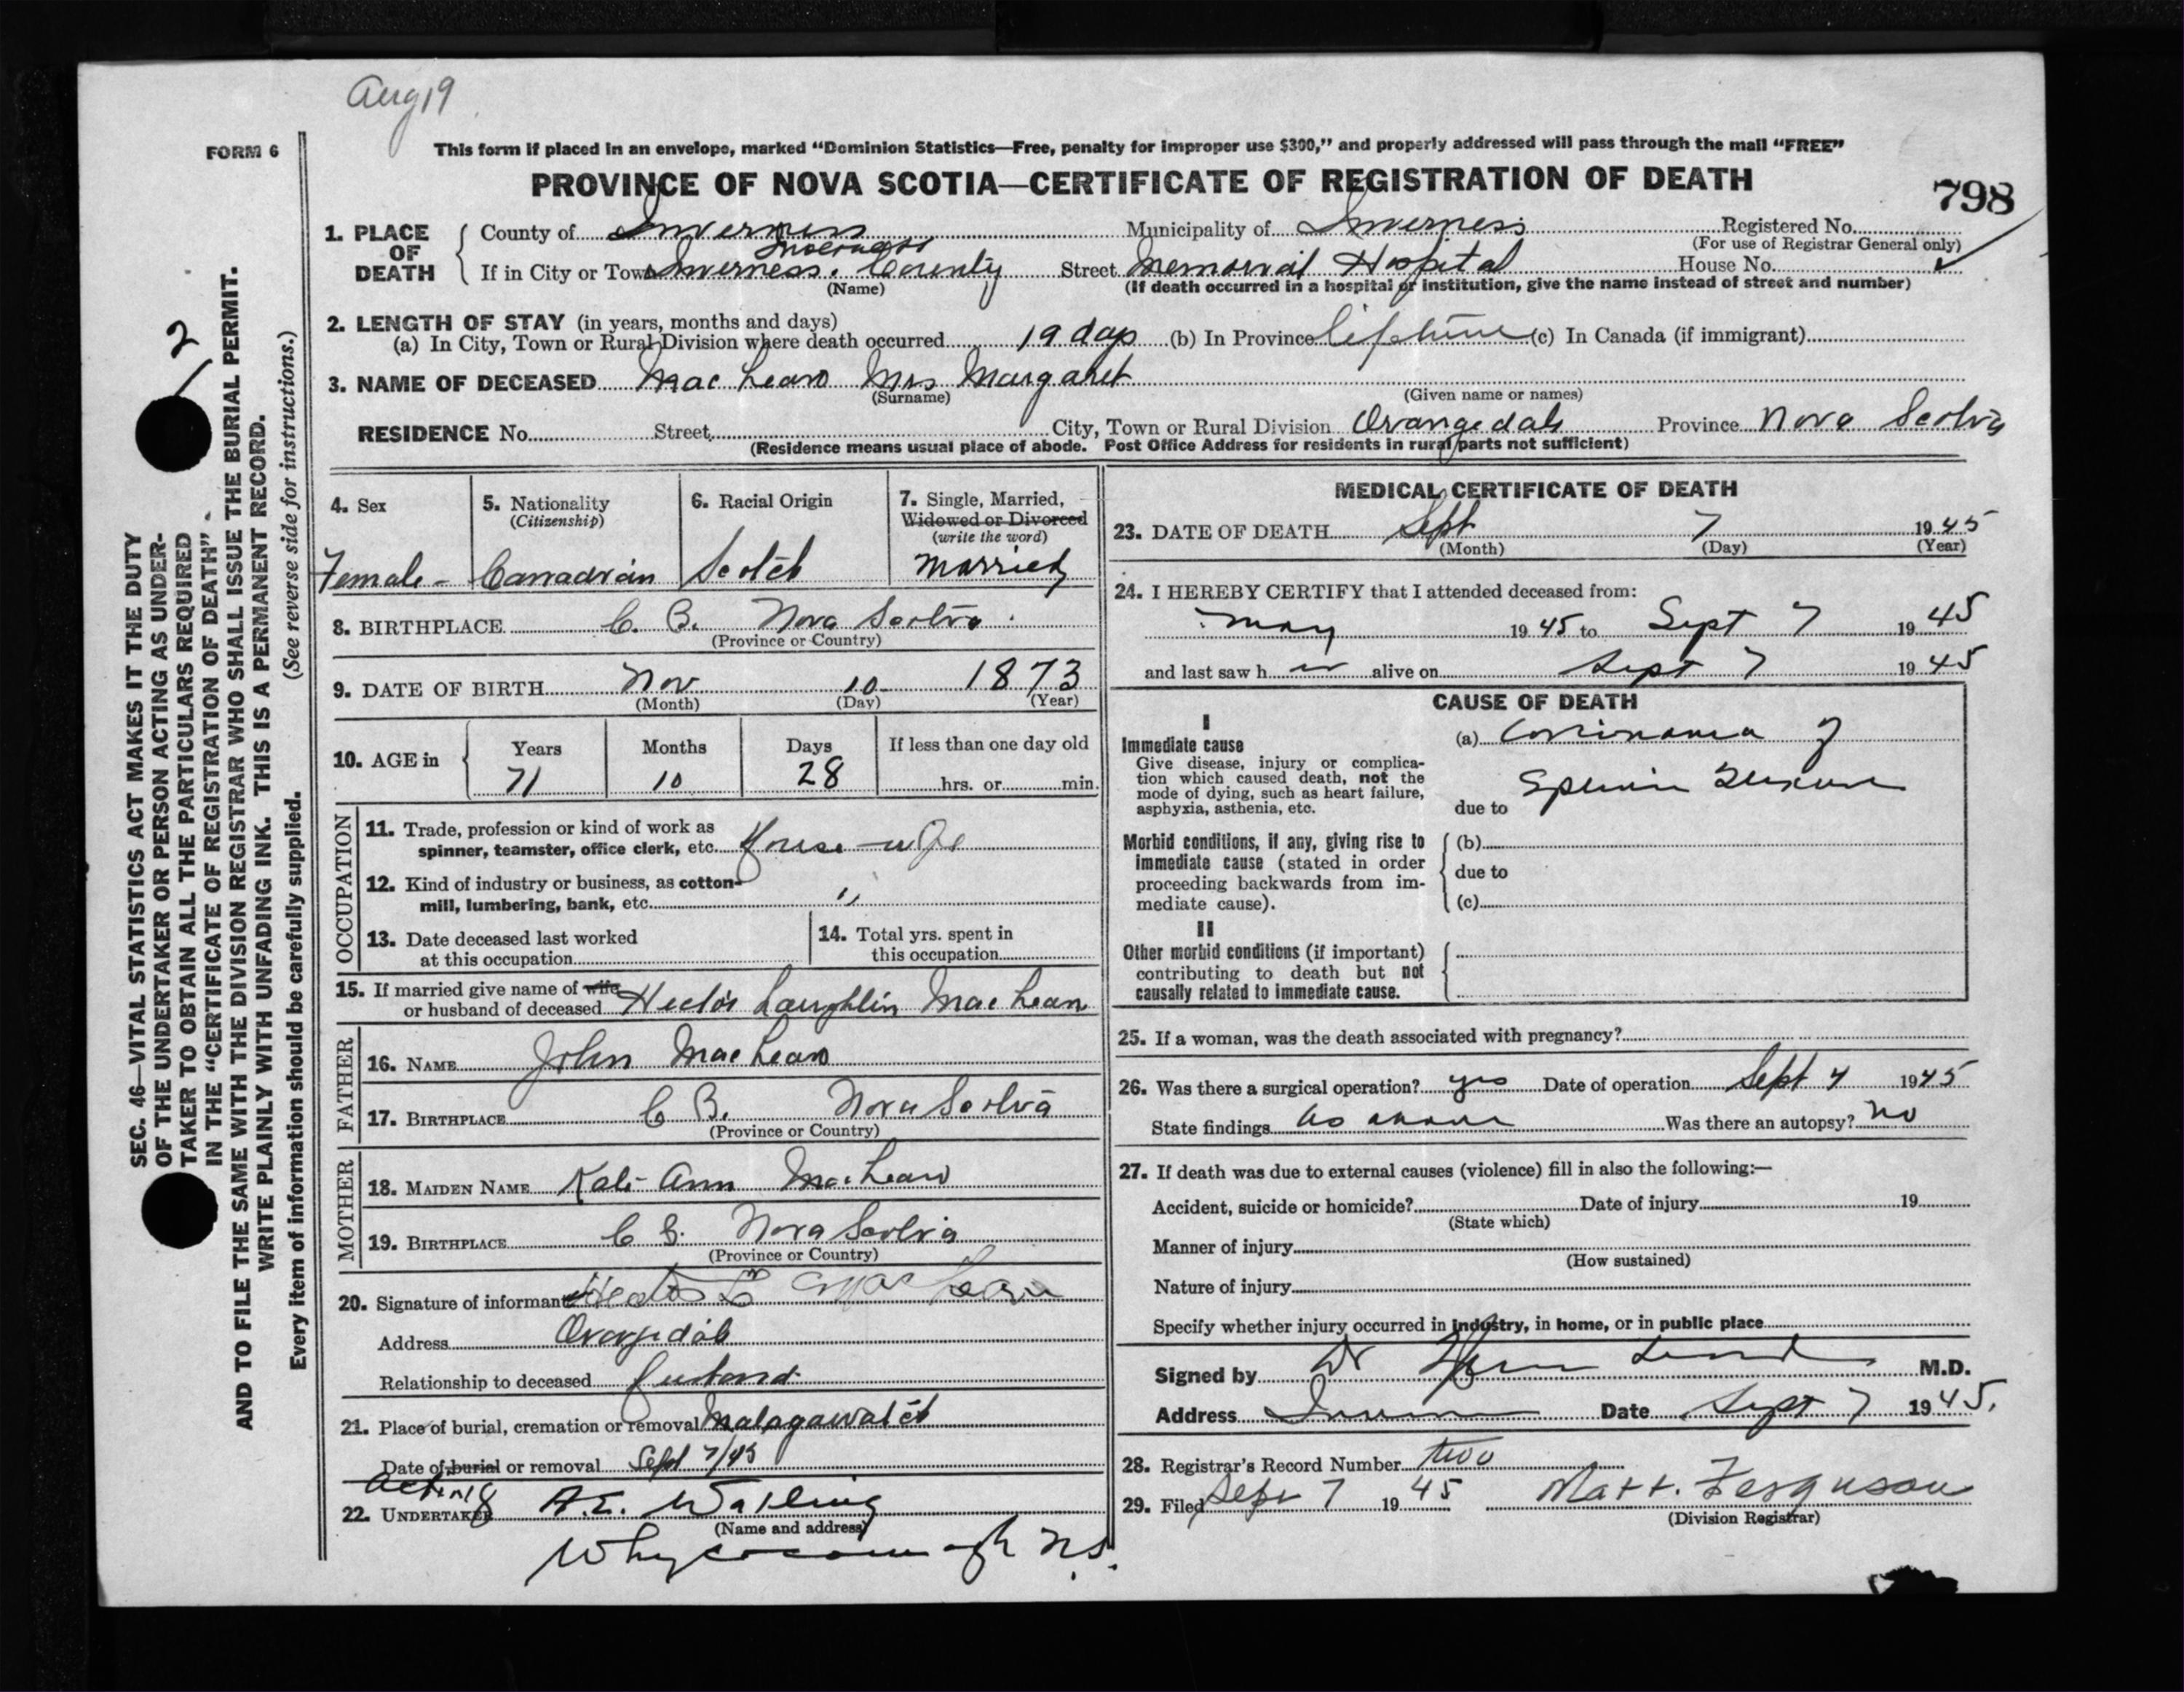 Aug 19
FORM 6
This form if placed in an envelope, marked “Dominion Statistics—Free, penalty for improper use $300,” and properly addressed will pass through the mail “FREE”
PROVINCE OF NOVA SCOTIA—CERTIFICATE OF REGISTRATION OF DEATH
798
1. PLACE OF DEATH
County of Inverness Municipality of Inverness Registered No.
(For use of Registrar General only)
Inverness
If in City or Town Inverness. County Street Memorial Hospital House No.
(Name) (If death occurred in a hospital or institution, give the name instead of street and number)
2. LENGTH OF STAY (in years, months and days)
(a) In City, Town or Rural Division where death occurred 19 days (b) In Province lifetime (c) In Canada (if immigrant)
3. NAME OF DECEASED MacLean Mrs Margaret
(Surname) (Given name or names)
RESIDENCE No. Street City, Town or Rural Division Orangedale Province Nova Scotia
(Residence means usual place of abode. Post Office Address for residents in rural parts not sufficient)
4. Sex
Female -
5. Nationality
(Citizenship)
Canadian
6. Racial Origin
Scotch
7. Single, Married,
Widowed or Divorced
(write the word)
Married
8. BIRTHPLACE C. B. Nova Scotia
(Province or Country)
9. DATE OF BIRTH Nov 10 1873
(Month) (Day) (Year)
10. AGE in
Years Months Days If less than one day old
71 10 28 hrs. or min.
OCCUPATION
11. Trade, profession or kind of work as
spinner, teamster, office clerk, etc. House-wife
12. Kind of industry or business, as cotton-
mill, lumbering, bank, etc. "
13. Date deceased last worked
at this occupation
14. Total yrs. spent in
this occupation
15. If married give name of wife
or husband of deceased Hector Laughlin MacLean
FATHER
16. NAME John MacLean
17. BIRTHPLACE C B. Nova Scotia
(Province or Country)
MOTHER
18. MAIDEN NAME Kate Ann MacLean
19. BIRTHPLACE C B. Nova Scotia
(Province or Country)
20. Signature of informant Hector L MacLean
Address Orangedale
Relationship to deceased husband
21. Place of burial, cremation or removal Malagawatch
Date of burial or removal Sept 7/45
Acting
22. UNDERTAKER A.E. Watling
(Name and address)
Whycocomagh N.S.
MEDICAL CERTIFICATE OF DEATH
23. DATE OF DEATH Sept 7 1945
(Month) (Day) (Year)
24. I HEREBY CERTIFY that I attended deceased from:
May 1945 to Sept 7 1945
and last saw h er alive on Sept 7 1945
CAUSE OF DEATH
I
Immediate cause
Give disease, injury or complica-
tion which caused death, not the
mode of dying, such as heart failure,
asphyxia, asthenia, etc.
(a) Carcinoma of
Splenic Flexure
due to
Morbid conditions, if any, giving rise to
immediate cause (stated in order
proceeding backwards from im-
mediate cause).
(b)
due to
(c)
II
Other morbid conditions (if important)
contributing to death but not
causally related to immediate cause.
25. If a woman, was the death associated with pregnancy?
26. Was there a surgical operation? yes Date of operation Sept 4 1945
State findings as above Was there an autopsy? no
27. If death was due to external causes (violence) fill in also the following:—
Accident, suicide or homicide? Date of injury 19
(State which)
Manner of injury
(How sustained)
Nature of injury
Specify whether injury occurred in industry, in home, or in public place
Signed by Dr M.D.
Address Date Sept 7 1945.
28. Registrar's Record Number two
29. Filed Sept 7 19 45 Matt. Ferguson
(Division Registrar)
2
SEC. 46—VITAL STATISTICS ACT MAKES IT THE DUTY
OF THE UNDERTAKER OR PERSON ACTING AS UNDER-
TAKER TO OBTAIN ALL THE PARTICULARS REQUIRED
IN THE “CERTIFICATE OF REGISTRATION OF DEATH”
AND TO FILE THE SAME WITH THE DIVISION REGISTRAR WHO SHALL ISSUE THE BURIAL PERMIT.
WRITE PLAINLY WITH UNFADING INK. THIS IS A PERMANENT RECORD.
Every item of information should be carefully supplied. (See reverse side for instructions.)